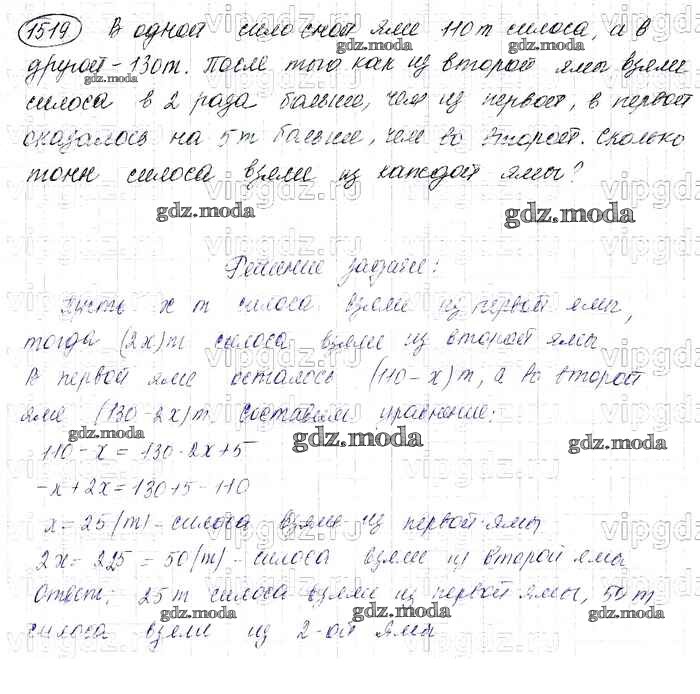 1519 В одной силосной яме 110 т силоса, а в
другой - 130 т. После того как из второй ямы взяли
силоса в 2 раза больше, чем из первой, в первой
оказалось на 5 т больше, чем во второй. Сколько
тонн силоса взяли из каждой ямы?
Решение задачи:
Пусть x т силоса взяли из первой ямы,
тогда (2x) т силоса взяли из второй ямы
В первой яме осталось (110-x) т, а во второй
яме (130-2x) т. Составим уравнение:
110-x=130-2x+5
-x+2x=130+5-110
x=25 (т) - силоса взяли из первой ямы
2x=2·25=50 (т) - силоса взяли из второй ямы
Ответ: 25 т силоса взяли из первой ямы, 50 т
силоса взяли из 2-ой ямы
gdz.moda
vipgdz.ru